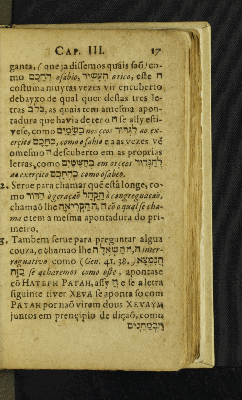 CAP. III. 17
ganta, (que ja dissemos quais saõ) co-
mo הֶחָכָם o sabio, הֶעָשִׁיר o rico, este ה
costuma muytas vezes vir encuberto
debayxo de qual quer destas tres le-
tras בכל, as quais tem a mesma apon-
tadura que havia de ter o ה se ally esti-
vese, como בַּשָּׁמַיִם nos ceos
exercito como o sabio e as vezes vẽ
o mesmo ה descuberto em as proprias
letras, como בְּהַשָּׁמַיִם em os ceos
exercito como o sabeo.
2. Serue para chamar que está longe, co-
mo הַדּוֹר ò geração הַקָּהָל ò congregação,
chamaõ lhe ה cõ o qual se cha-
ma e tem a mesma apontadura do pri-
meiro.
3. Tambem serue para preguntar algua
couza, e chamaõ lhe ה inter-
rogativo como (Gen. 41. 38.) הֲנִמְצָא
כָזֶה se acharemos como este, apontase
cõ HATEPH PATAH, assy הֲ e se a letra
siguinte tiver XEVA se aponta so com
PATAH por naõ virem dous XEVAYM
juntos em prencipio de diçaõ, como